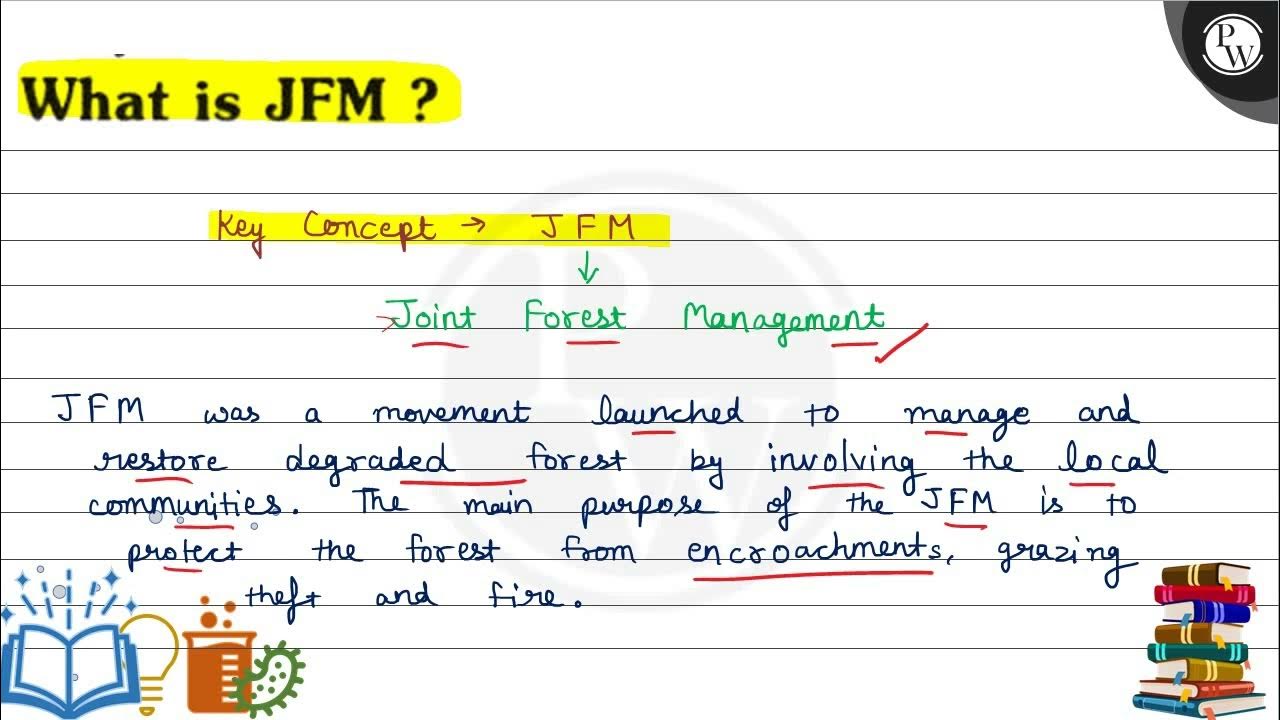 PW
What is JFM ?
Key Concept → JFM
↓
Joint Forest Management
JFM was a movement launched to manage and
restore degraded forest by involving the local
communities. The main purpose of the JFM is to
protect the forest from encroachments, grazing
theft and fire.